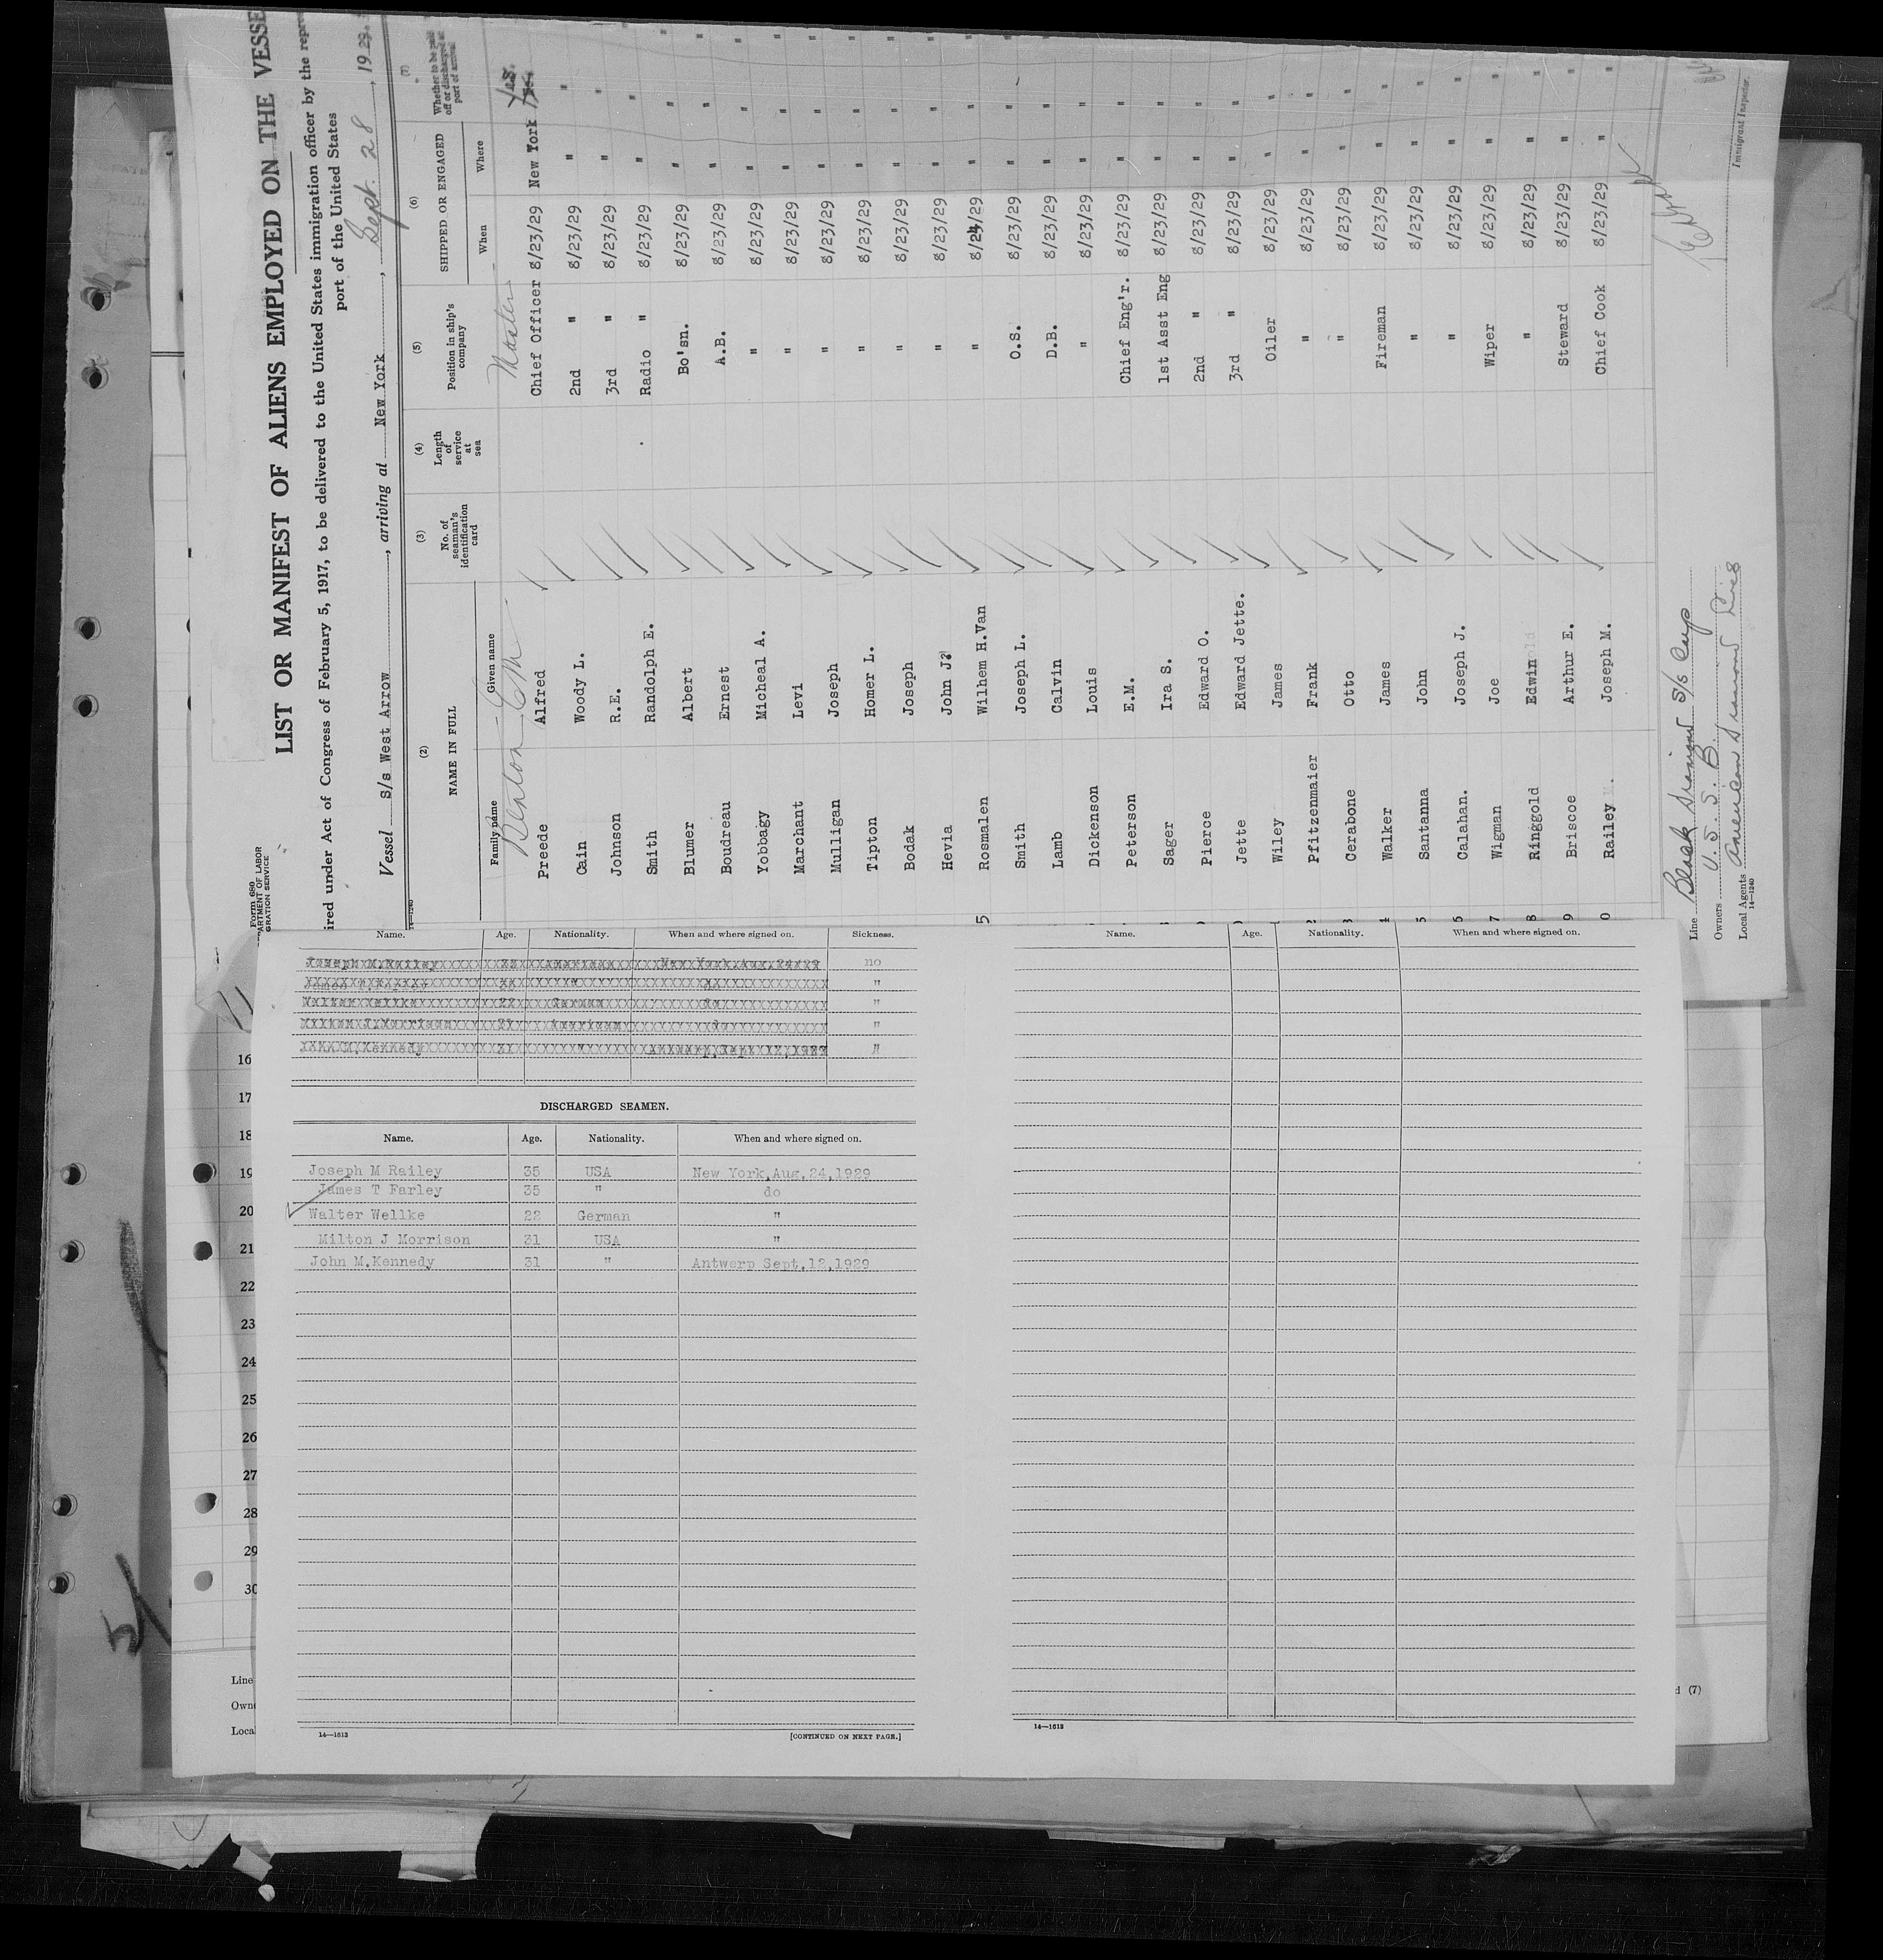 Form 680
LIST OR MANIFEST OF ALIENS EMPLOYED ON THE VESSE
ired under Act of Congress of February 5, 1917, to be delivered to the United States immigration officer by the repre
port of the United States
Vessel S/s West Arrow, arriving at New York, Sept. 28, 1929.
(2) (3) (4) (5) (6) (7)
NAME IN FULL No. of seaman's identification card Length of service at sea Position in ship's company SHIPPED OR ENGAGED Whether to be paid off or discharged at port of arrival
Family name Given name When Where
Denton Master
Preede Alfred Chief Officer 8/23/29 New York Yes.
Cain Woody L. 2nd " 8/23/29 " "
Johnson R.E. 3rd " 8/23/29 " "
Smith Randolph E. Radio " 8/23/29 " "
Blumer Albert Bo'sn. 8/23/29 " "
Boudreau Ernest A.B. 8/23/29 " "
Yobbagy Micheal A. " 8/23/29 " "
Marchant Levi " 8/23/29 " "
Mulligan Joseph " 8/23/29 " "
Tipton Homer L. " 8/23/29 " "
Bodak Joseph " 8/23/29 " "
Hevia John J. " 8/23/29 " "
5 Rosmalen Wilhem H.Van " 8/24/29 " "
Smith Joseph L. O.S. 8/23/29 " "
Lamb Calvin D.B. 8/23/29 " "
Dickenson Louis " 8/23/29 " "
Peterson E.M. Chief Eng'r. 8/23/29 " "
Sager Ira S. 1st Asst Eng 8/23/29 " "
Pierce Edward O. 2nd " 8/23/29 " "
Jette Edward Jette. 3rd " 8/23/29 " "
Wiley James Oiler 8/23/29 " "
2 Pfitzenmaier Frank " 8/23/29 " "
3 Cerabone Otto " 8/23/29 " "
4 Walker James Fireman 8/23/29 " "
5 Santanna John " 8/23/29 " "
6 Calahan. Joseph J. " 8/23/29 " "
7 Wigman Joe Wiper 8/23/29 " "
8 Ringgold Edwin " 8/23/29 " "
9 Briscoe Arthur E. Steward 8/23/29 " "
0 Railey Joseph M. Chief Cook 8/23/29 " "
Line Black Diamond S/s Corp
Owners U. S. S. B.
Local Agents American Diamond Lines
14—1240
Immigrant Inspector.
Name. Age. Nationality. When and where signed on. Sickness.
Joseph M.Railey no
"
"
"
"
DISCHARGED SEAMEN.
Name. Age. Nationality. When and where signed on.
Joseph M Railey 35 USA New York,Aug,24,1929
James T Farley 35 " do
Walter Wellke 22 German "
Milton J Morrison 31 USA "
John M.Kennedy 31 " Antwerp Sept,12,1929
14—1613 [CONTINUED ON NEXT PAGE.]
Name. Age. Nationality. When and where signed on.
14—1613
16
17
18
19
20
21
22
23
24
25
26
27
28
29
30
Line
Own
Loca
d (7)
5